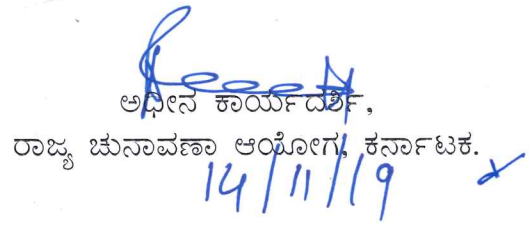 ಅಧೀನ ಕಾರ್ಯದರ್ಶಿ,
ರಾಜ್ಯ ಚುನಾವಣಾ ಆಯೋಗ, ಕರ್ನಾಟಕ.
14/11/19